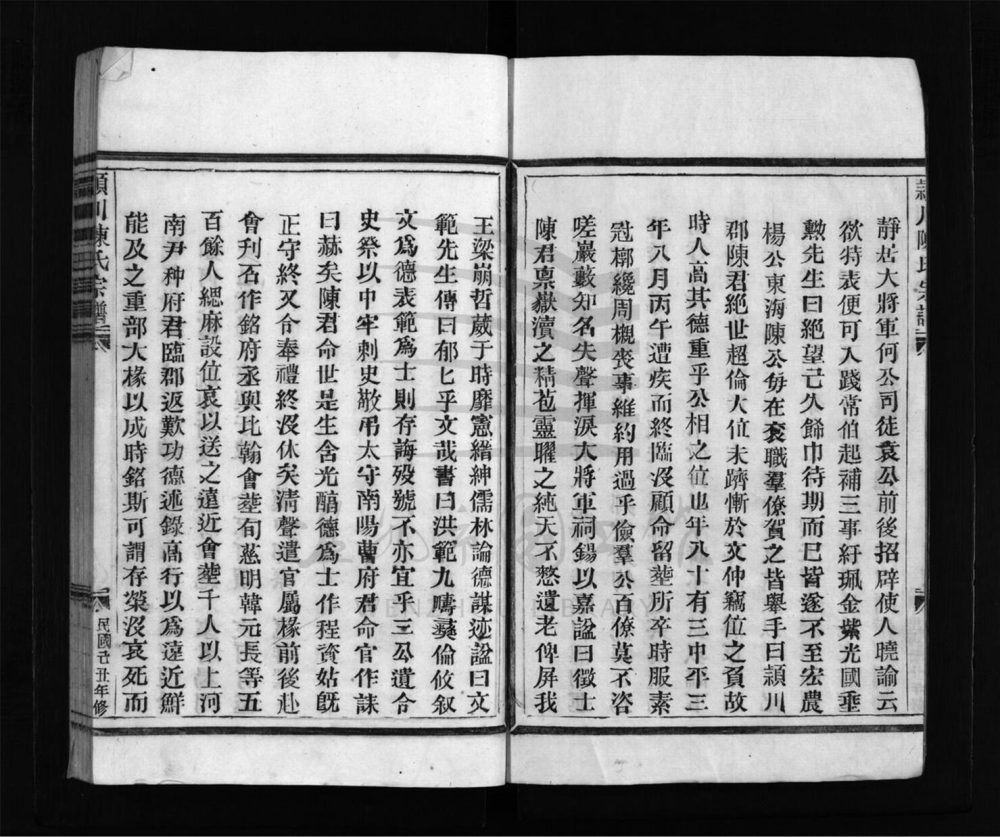 靜居大將軍何公司徒袁公前後招辟使人曉諭云
欲特表便可入踐常伯起補三事紆珮金紫光國垂
勲先生曰絕望已久餙巾待期而已皆遂不至宏農
楊公東海陳公每在衮職羣僚賀之皆舉手曰潁川
郡陳君絕世超倫大位未躋慚於文仲竊位之負故
時人高其德重乎公相之位也年八十有三中平三
年八月丙午遭疾而終臨沒顧命留塟所卒時服素
冠槨纔周櫬喪事維約用過乎儉羣公百僚莫不咨
嗟巖藪知名失聲揮淚大將軍祠錫以嘉諡曰徵士
陳君稟嶽瀆之精苞靈曜之純天不憖遺老俾屏我
王梁崩哲萎于時靡憲縉紳儒林論德謀迹諡曰文
範先生傳曰郁匕乎文哉書曰洪範九疇彜倫攸叙
文爲德表範爲士則存誨歿號不亦宜乎三公遣令
史祭以中牢刺史敬弔太守南陽曹府君命官作誄
曰赫矣陳君命世是生含光醕德爲士作程資姑旣
正守終又令奉禮終沒休矣清聲遣官屬椽前後赴
會刋石作銘府丞與比翰會塟旬慈明韓元長等五
百餘人緦麻設位哀以送之遠近會塟千人以上河
南尹种府君臨郡返歎功德述錄高行以爲遠近鮮
能及之重部大椽以成時銘斯可謂存榮沒哀死而
潁川陳氏宗譜
民國己丑年修